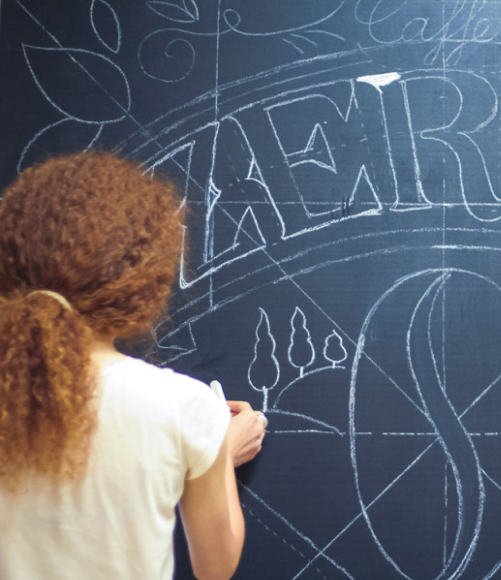 Caffe
AER